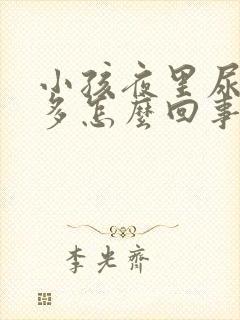 小孩夜里尿
多怎麽回事
李光齊